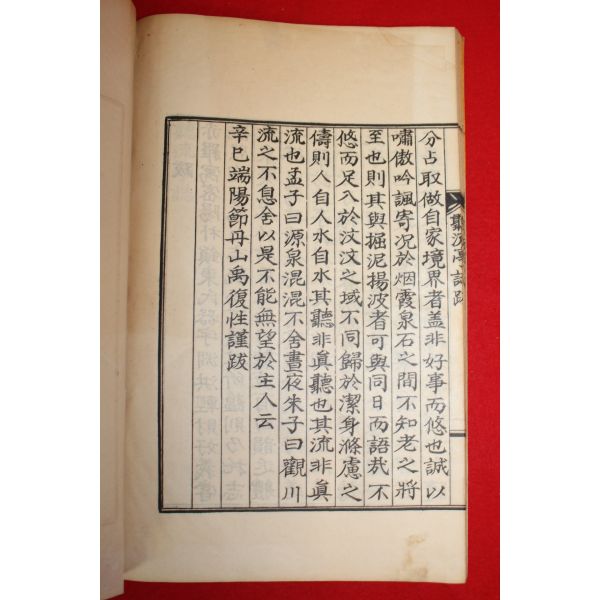 分占取做自家境界者盖非好事而悠也誠以
嘯傲吟諷寄况於烟霞泉石之間不知老之將
至也則其與掘泥揚波者可與同日而語哉不
悠而足入於汶汶之域不同歸於潔身滌慮之
儔則人自人水自水其聽非眞聽也其流非眞
流也孟子曰源泉混混不舍晝夜朱子曰觀川
流之不息舍以是不能無望於主人云
辛巳端陽節丹山禹復性謹跋